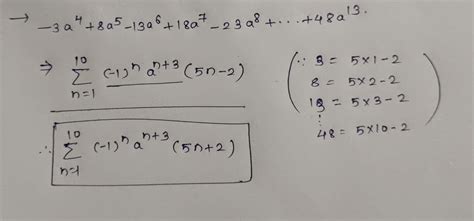 → -3a⁴+8a⁵-13a⁶+18a⁷-23a⁸+⋯+48a¹³.
⇒ ∑_{n=1}^{10} (-1)ⁿ aⁿ⁺³ (5n-2)
(∵ 3 = 5×1-2
8 = 5×2-2
13 = 5×3-2
⋮
48 = 5×10-2)
∴ ∑_{n=1}^{10} (-1)ⁿ aⁿ⁺³ (5n+2)